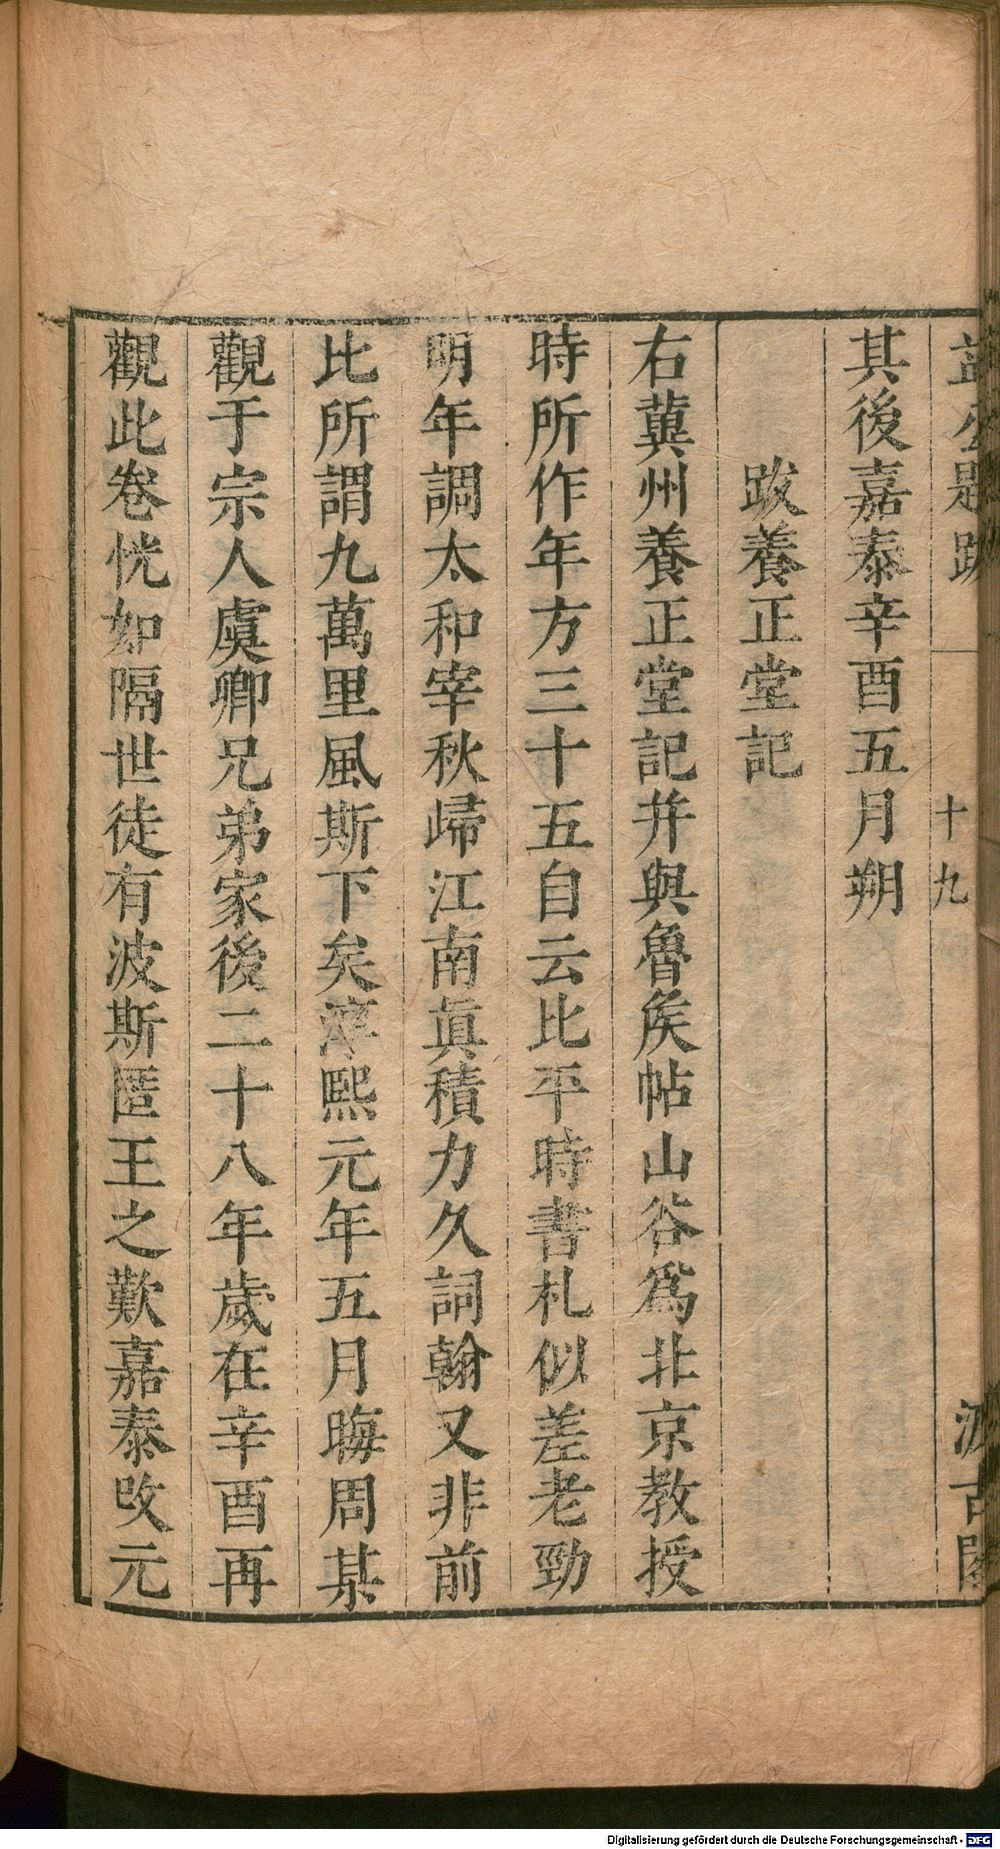 益公題跋 十九 汲古閣
其後嘉泰辛酉五月朔
跋養正堂記
右冀州養正堂記并與魯矦帖山谷爲北京教授
時所作年方三十五自云比平時書札似差老勁
明年調太和宰秋歸江南眞積力久詞翰又非前
比所謂九萬里風斯下矣淳熙元年五月晦周某
觀于宗人虞卿兄弟家後二十八年歲在辛酉再
觀此卷恍如隔世徒有波斯匿王之歎嘉泰改元
Digitalisierung gefördert durch die Deutsche Forschungsgemeinschaft - DFG